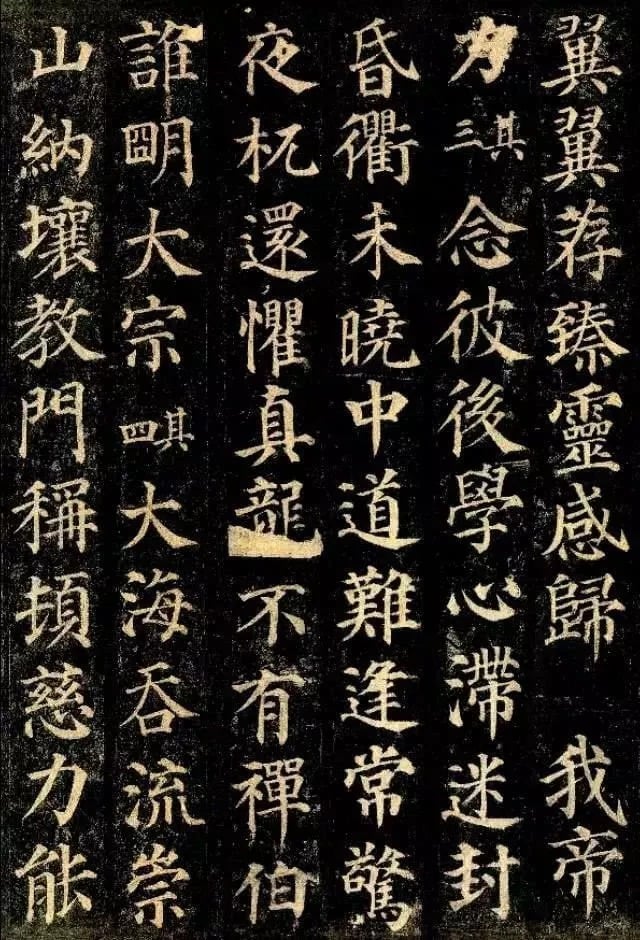 翼翼荐臻靈感歸 我帝
力其三念彼後學心滯迷封
昏衢未曉中道難逢常驚
夜杌還懼真龍不有禪伯
誰明大宗其四大海吞流崇
山納壤教門稱頓慈力能